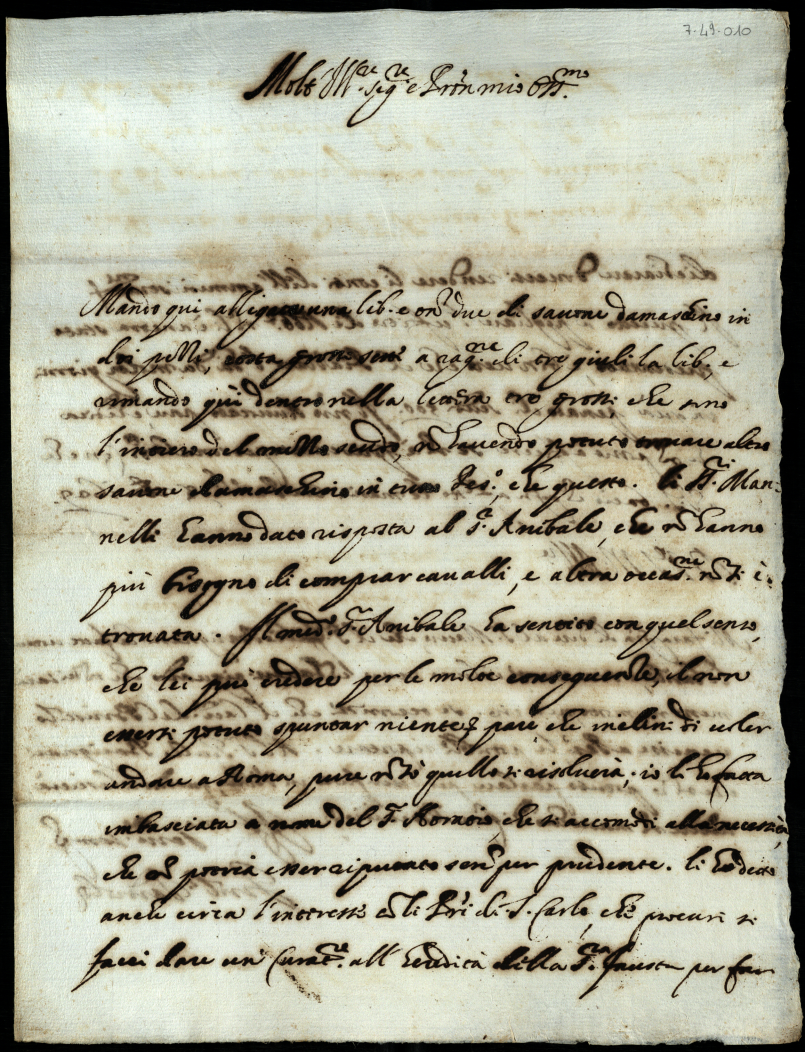 7-49-010
Molt Ill.re Sig.re e Pron mio Oss.mo
Mando qui alligato una lib. e on. due di savone damaschino in
doi pezzi, costa grossi sette a rag.ne di tre giuli la lib., e
rimando qui dentro nella lettera tre grossi che sono
l'intiero del mezzo scudo, nõ havendo potuto trovare altro
savone damaschino in tutto Pes.o, che questo. li SS.ri Man-
nelli hanno dato risposta al S.r Anibale, che nõ hanno
più bisogno di comprar cavalli, e altra occas.ne nõ si è
trovata. Il med.o S.r Anibale ha sentito con quel senso,
che lei può credere per le molte conseguenze, il non
essersi potuto spuntar niente, pare che inclini di voler
andare a Roma, pure nõ so quello si risolverà, io li ho fatta
imbasciata a nome del S.r Horatio, che si accomodi alla necessità,
che così potrià esser riputato semp per prudente. li ho detto
anche circa l'interesse cõ li Pri di S. Carlo, che procuri si
facci dare un Curat.re all'heredità della S.ra Fausta per far